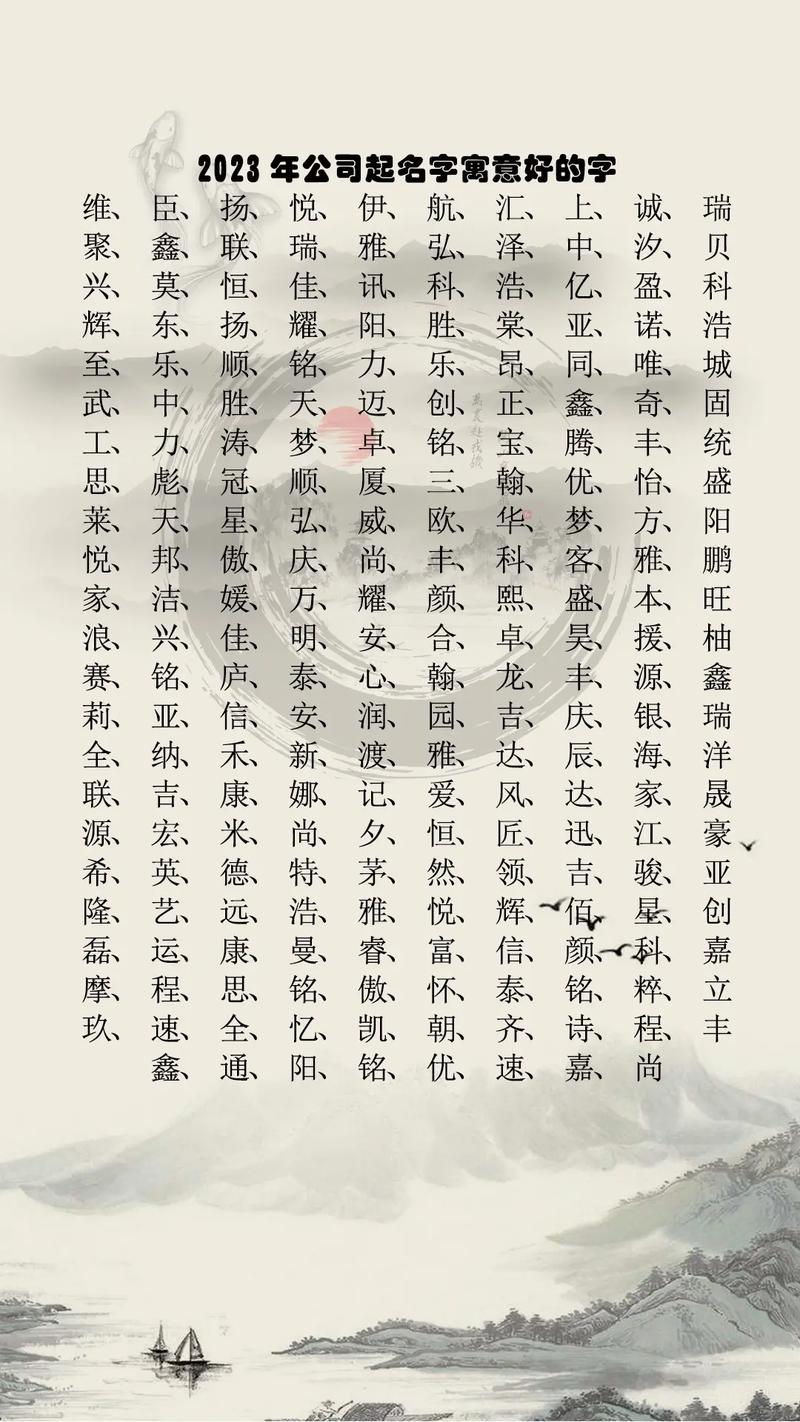 2023年公司起名字寓意好的字
维、臣、扬、悦、伊、航、汇、上、诚、瑞
聚、鑫、联、瑞、雅、弘、泽、中、汐、贝
兴、莫、恒、佳、讯、科、浩、亿、盈、科
辉、东、扬、耀、阳、胜、棠、亚、诺、浩
至、乐、顺、铭、力、乐、昂、同、唯、城
武、中、胜、天、迈、创、正、鑫、奇、固
工、力、涛、梦、卓、铭、宝、腾、丰、统
思、彪、冠、顺、厦、三、翰、优、怡、盛
莱、天、星、弘、威、欧、华、梦、方、阳
悦、邦、傲、庆、尚、丰、科、客、雅、鹏
家、洁、媛、万、耀、颜、熙、盛、本、旺
浪、兴、佳、明、安、合、卓、昊、援、柚
赛、铭、庐、泰、心、翰、龙、丰、源、鑫
莉、亚、信、安、润、园、吉、庆、银、瑞
全、纳、禾、新、渡、雅、达、辰、海、洋
联、吉、康、娜、记、爱、风、达、家、晟
源、宏、米、尚、夕、恒、匠、迅、江、豪
希、英、德、特、茅、然、领、吉、骏、亚
隆、艺、远、浩、雅、悦、辉、佰、星、创
磊、运、康、曼、睿、富、信、颜、科、嘉
摩、程、思、铭、傲、怀、泰、铭、粹、立
玖、速、全、忆、凯、朝、齐、诗、程、丰
鑫、通、阳、铭、优、速、嘉、尚